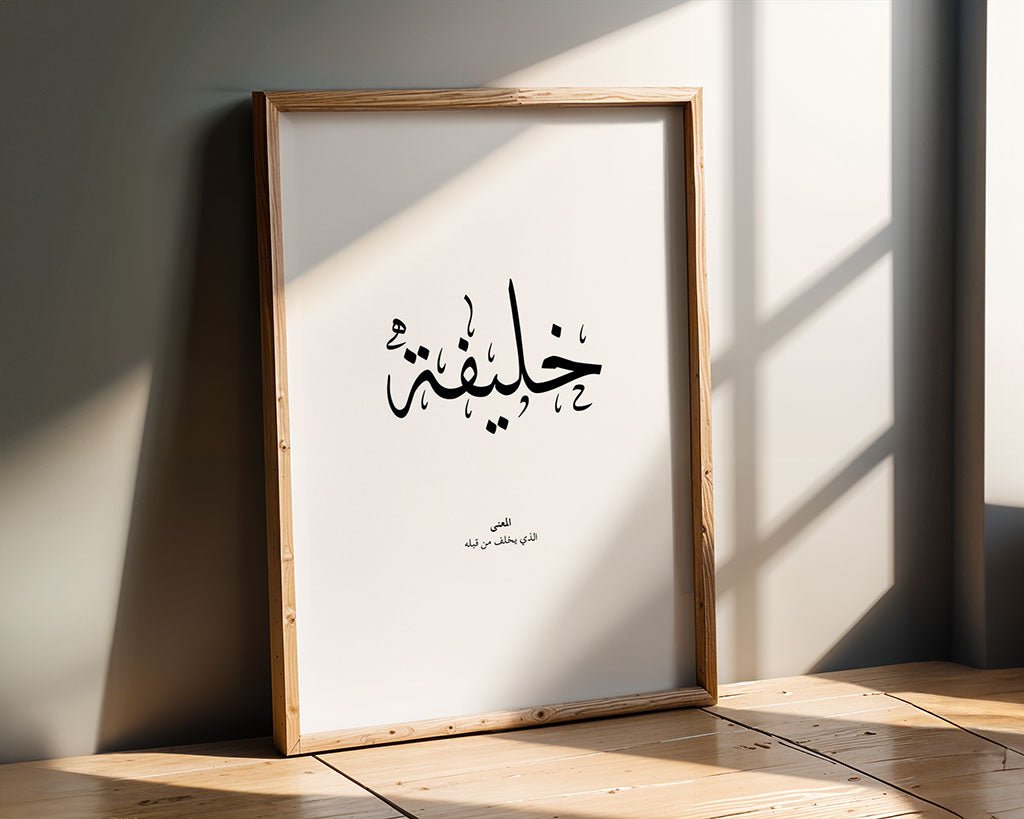 خليفة
المعنى
الذي يخلف من قبله